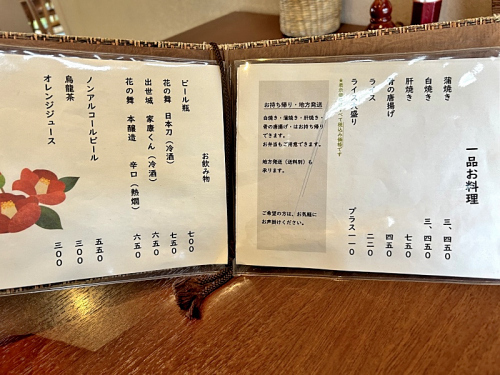 一品お料理
蒲焼き 三、四五〇
白焼き 三、四五〇
肝焼き 七五〇
骨の唐揚げ 四五〇
ライス 二二〇
ライス大盛り プラス一一〇
お持ち帰り・地方発送
白焼き・蒲焼き・肝焼き・
骨の唐揚げ・はお持ち帰り
できます。
お弁当もご用意できます。
地方発送(送料別)も
承ります。
ご希望の方は、お気軽に
お声掛けください。
お飲み物
ビール瓶 七〇〇
花の舞 日本刀(冷酒) 七五〇
出世城 家康くん(冷酒) 六五〇
花の舞 本醸造 辛口(熱燗) 六五〇
ノンアルコールビール 五五〇
烏龍茶 三〇〇
オレンジジュース 三〇〇